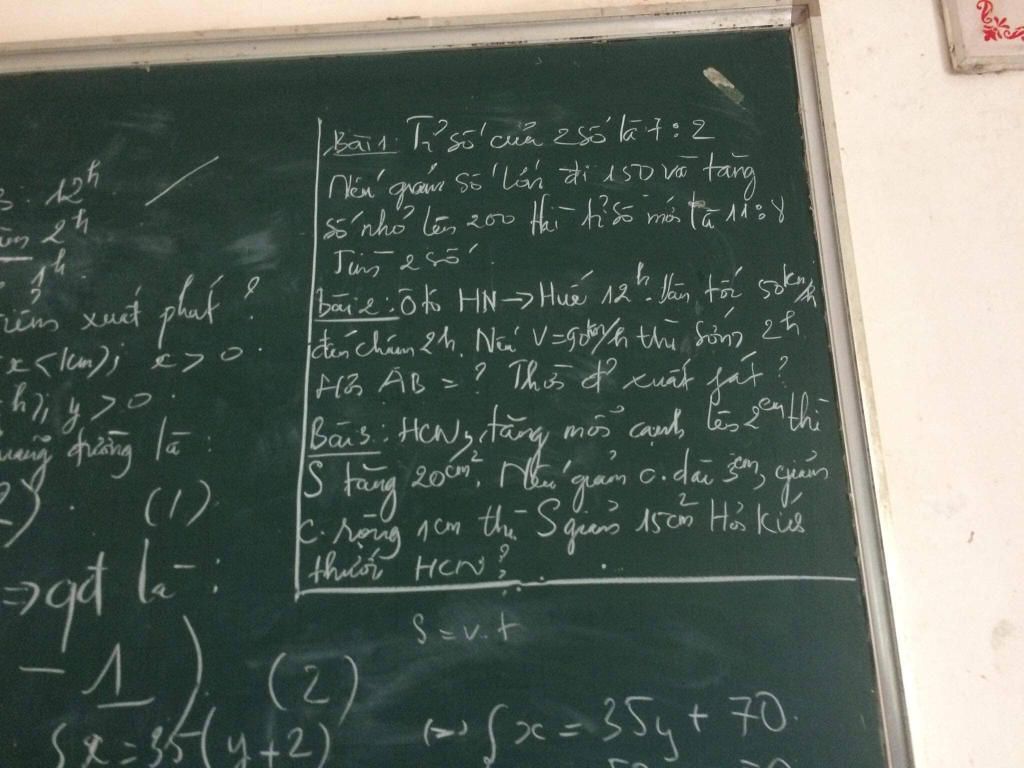 12h
2h
1h
xuất phát ?
x < 1cm); x > 0.
h); y > 0.
đường là :
2). (1)
=> qđ là :
- 1) (2)
{ x = 35(y + 2)
Bài 1: Tỉ số của 2 số là 7 : 2
Nếu giảm số lớn đi 150 và tăng
số nhỏ lên 200 thì tỉ số mới là 11 : 8
Tìm 2 số.
Bài 2: Ô tô HN → Huế 12h. Vận tốc 50km/h
đến chậm 2h. Nếu V = 90km/h thì sớm 2h
Hỏi AB = ? Thời đ' xuất fát ?
Bài 3: HCN, tăng mỗi cạnh lên 2cm thì
S tăng 20cm². Nếu giảm c. dài 3cm, giảm
c. rộng 1cm thì S giảm 15cm² Hỏi kích
thước HCN ?
S = v.t
<=> { x = 35y + 70.